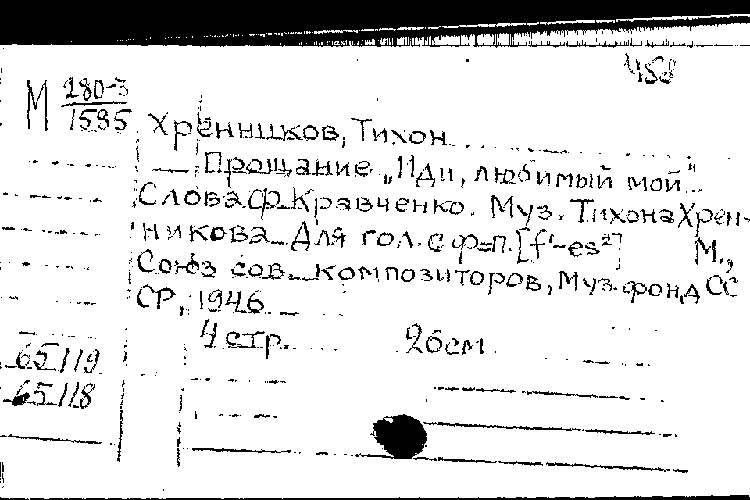 458
М 280-3
1585
Хренников, Тихон
Прощание „Иди, любимый мой"
Слова Ф. Кравченко. Муз. Тихона Хрен-
никова. Для гол. с ф-п. [f¹-es²] М.,
Союз сов. композиторов, Муз. фонд СС
СР, 1946.
4 стр. 26см
65119
65118